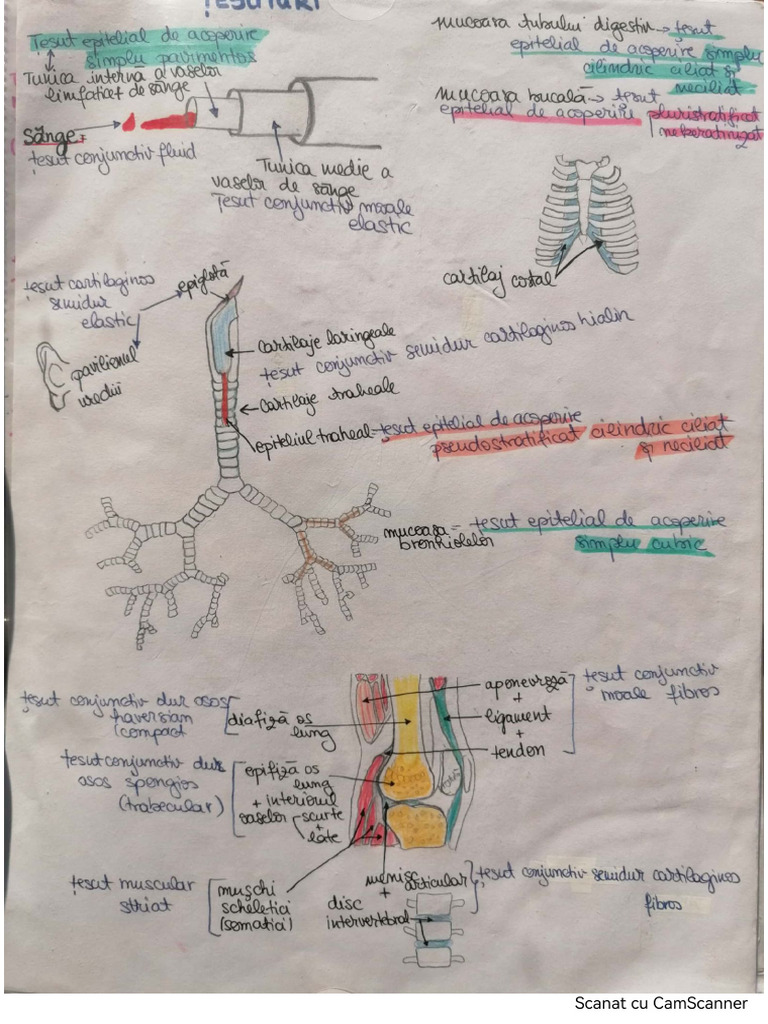 ȚESUTURI
Țesut epitelial de acoperire
simplu pavimentos
Tunica internă a vaselor
limfatice și de sânge
Sânge =
țesut conjunctiv fluid
Tunica medie a
vaselor de sânge
Țesut conjunctiv moale
elastic
mucoara tubului digestiv → țesut
epitelial de acoperire simplu
cilindric ciliat și
neciliat
mucoara bucală → țesut
epitelial de acoperire pluristratificat
nekeratinizat
cartilaj costal
țesut cartilaginos
semidur
elastic
epiglotă
pavilionul
urechii
cartilaje laringeale
țesut conjunctiv semidur cartilaginos hialin
cartilaje traheale
epiteliul traheal = țesut epitelial de acoperire
pseudostratificat cilindric ciliat
și neciliat
mucoasa = țesut epitelial de acoperire
bronhiolelor simplu cubic
țesut conjunctiv dur osos
haversian
(compact
diafiză os
lung
aponevroză
+
ligament
+
tendon
țesut conjunctiv
moale fibros
țesut conjunctiv dur
osos spongios
(trabecular)
epifiză os
lung
+ interiorul
oaselor scurte
+
late
țesut muscular
striat
mușchi
scheletici
(somatici)
menisc articular
+
disc
intervertebral
țesut conjunctiv semidur cartilaginos
fibros
Scanat cu CamScanner